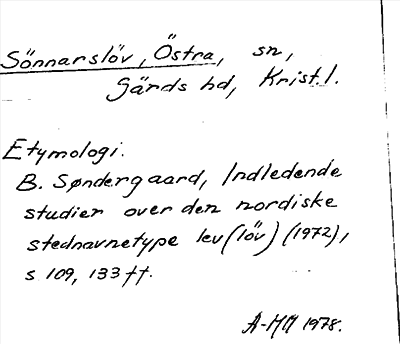 Sönnarslöv, Östra, sn,
Gärds hd, Krist. l.
Etymologi.
B. Søndergaard, Indledende
studier over den nordiske
stednavnetype lev (löv) (1972),
s 109, 133 ff.
A-MH 1978.